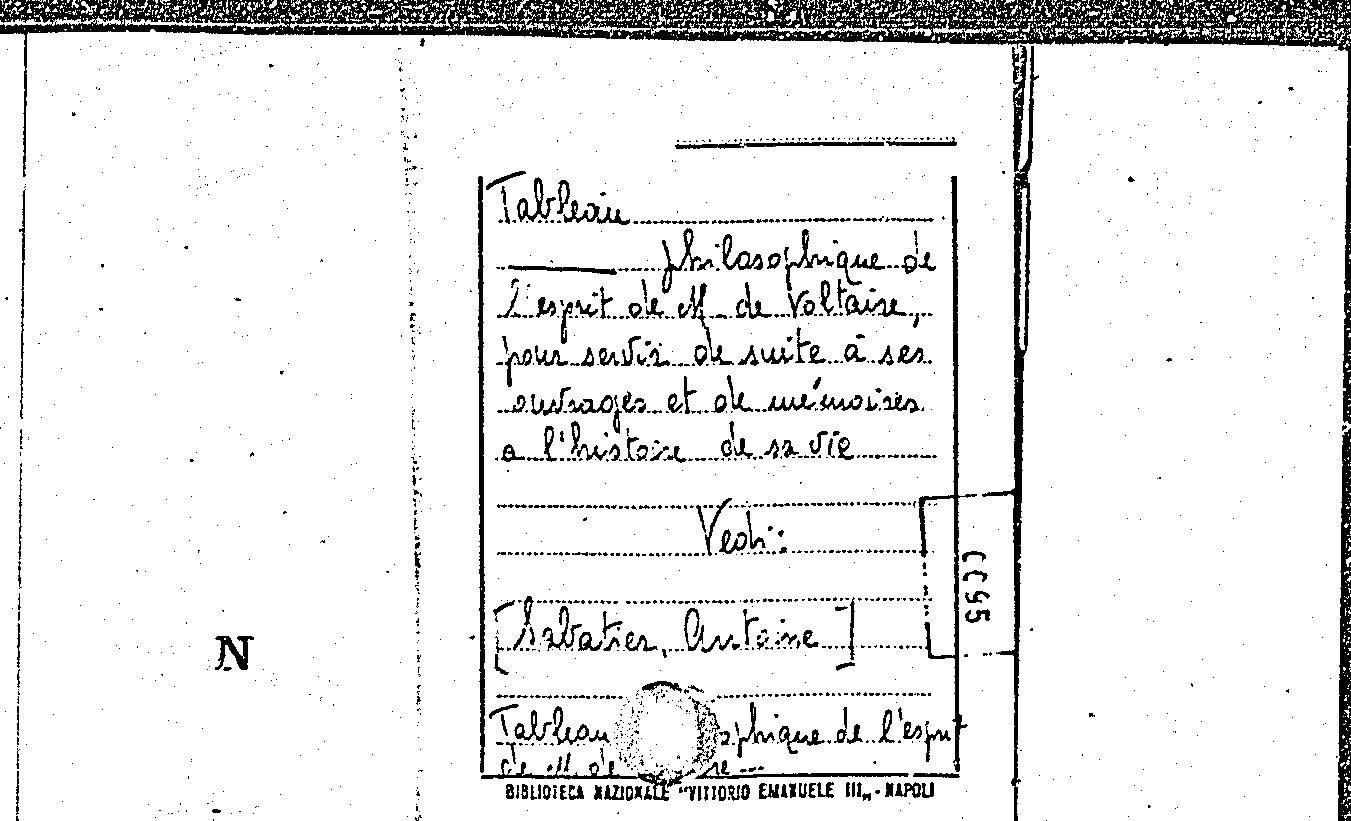 Tableau
philosophique de
l'esprit de M. de Voltaire,
pour servir de suite à ses
ouvrages et de mémoires
a l'histoire de sa vie
Vedi:
[Sabatier, Antoine]
Tableau sophique de l'esprit
de M. de re...
BIBLIOTECA NAZIONALE "VITTORIO EMANUELE III„ - NAPOLI
N